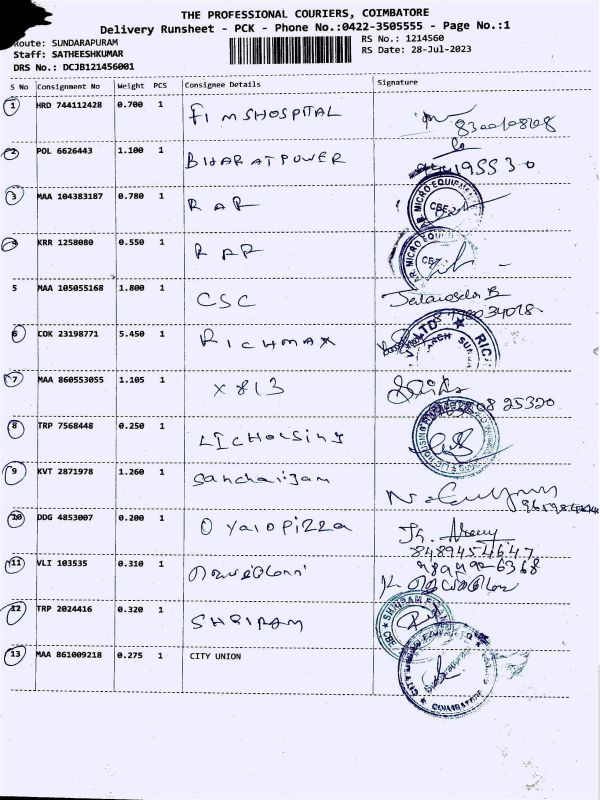 THE PROFESSIONAL COURIERS, COIMBATORE
Delivery Runsheet - PCK - Phone No.:0422-3505555 - Page No.:1
Route: SUNDARAPURAM
RS No.: 1214560
Staff: SATHEESHKUMAR
RS Date: 28-Jul-2023
DRS No.: DCJB121456001
S No Consignment No Weight PCS Consignee Details Signature
1 HRD 744112428 0.700 1 FIMSHOSPITAL
2 POL 6626443 1.100 1 BHARATPOWER
3 MAA 104383187 0.780 1 RAR
4 KRR 1258080 0.550 1 RAR
5 MAA 105055168 1.800 1 CSC
6 COK 23198771 5.450 1 RICHMAX
7 MAA 860553055 1.105 1 X813
8 TRP 7568448 0.250 1 LICHOUSING
9 KVT 2871978 1.260 1 Sancharijam
10 DDG 4853007 0.200 1 Oyalopizza
8489454647
11 VLI 103535 0.310 1
12 TRP 2024416 0.320 1 SHRIRAM
13 MAA 861009218 0.275 1 CITY UNION